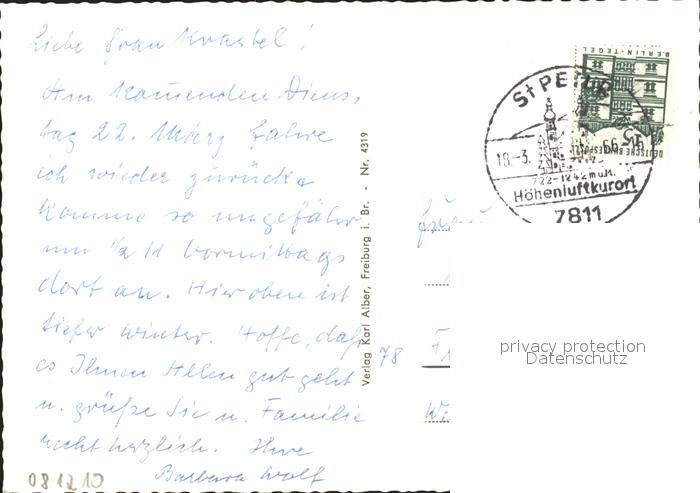 Liebe Frau Krastel!
Am kommenden Diens,
tag 22. März fahre
ich wieder zurück
komme so ungefähr
um 1/2 11 Vormittags
dort an. Hier oben ist
tiefer winter. Hoffe, daß
es Ihnen Allen gut geht
u. grüße Sie u. Familie
recht herzlich. Ihre
Barbara Wolf
081210
Verlag Karl Alber, Freiburg i. Br. - Nr. 4319
BERLIN-TEGEL
DEUTSCHE BUNDESPOST
15
St PETER
18.-3.
722-1242 m ü.M.
Höhenluftkurort
7811
Frau
78
privacy protection
Datenschutz